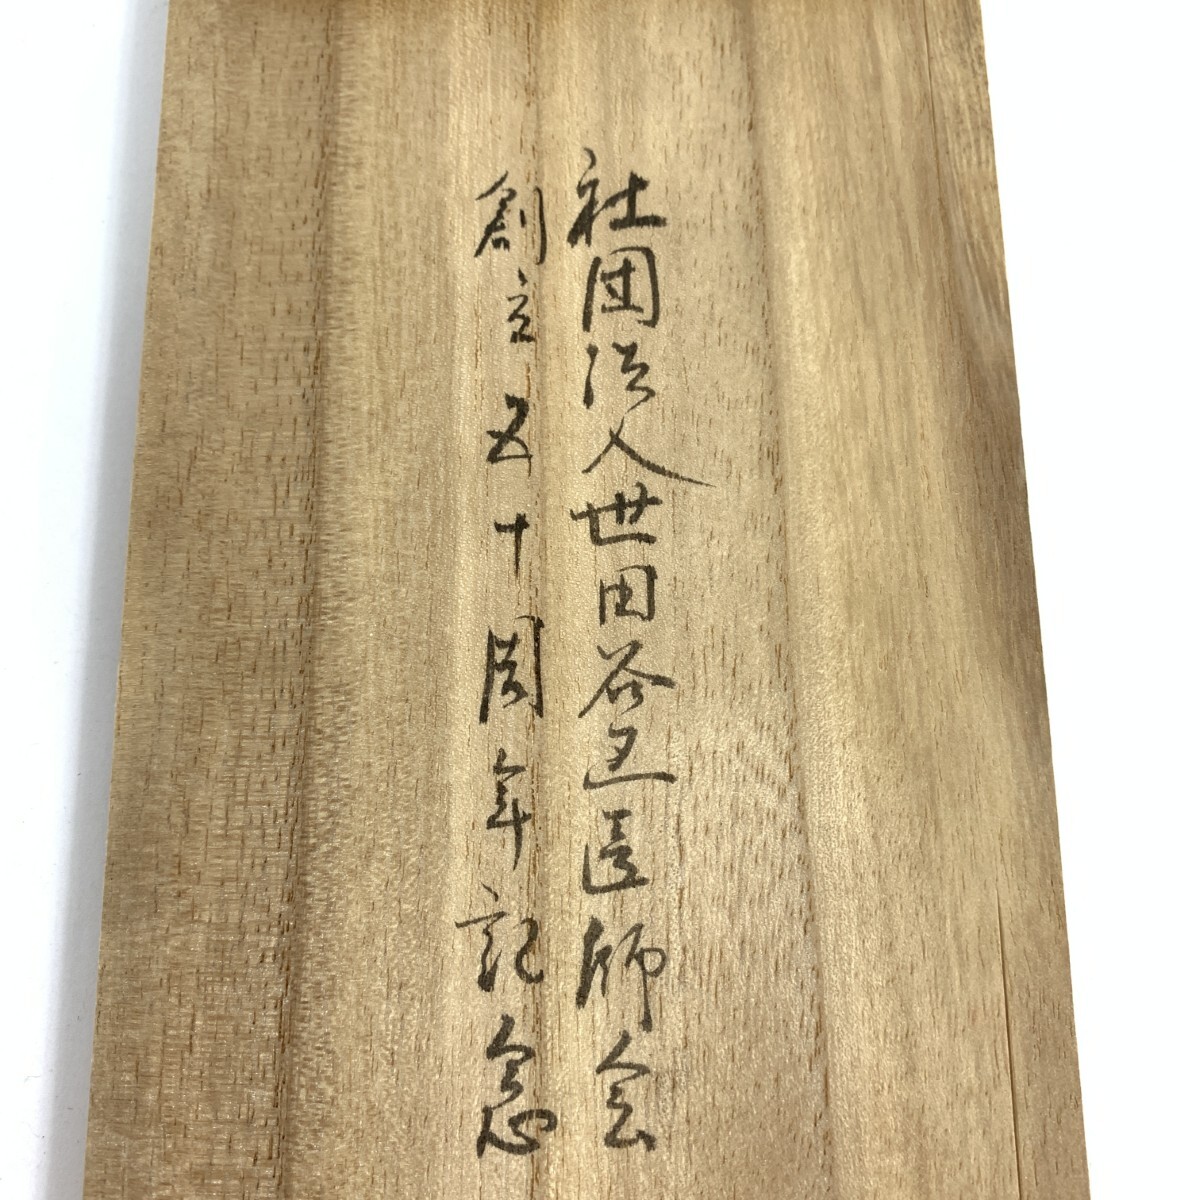 社団法人世田谷区医師会
創立五十周年記念